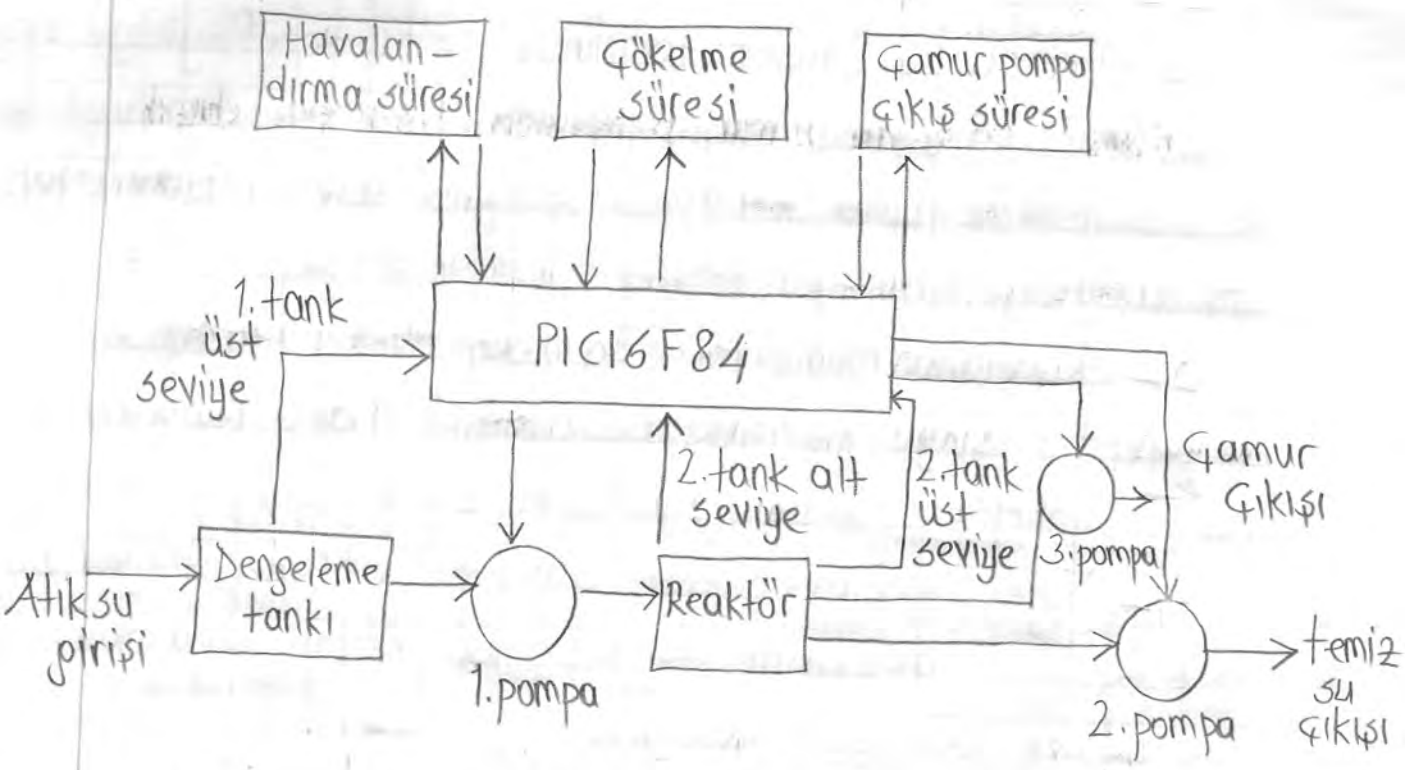 Havalan-
dırma süresi
Çökelme
süresi
Çamur pompa
çıkış süresi
1. tank
üst
seviye
PIC16F84
2. tank alt
seviye
2. tank
üst
seviye
Çamur
Çıkışı
3. pompa
Atıksu
girişi
Dengeleme
tankı
1. pompa
Reaktör
2. pompa
temiz
su
çıkışı